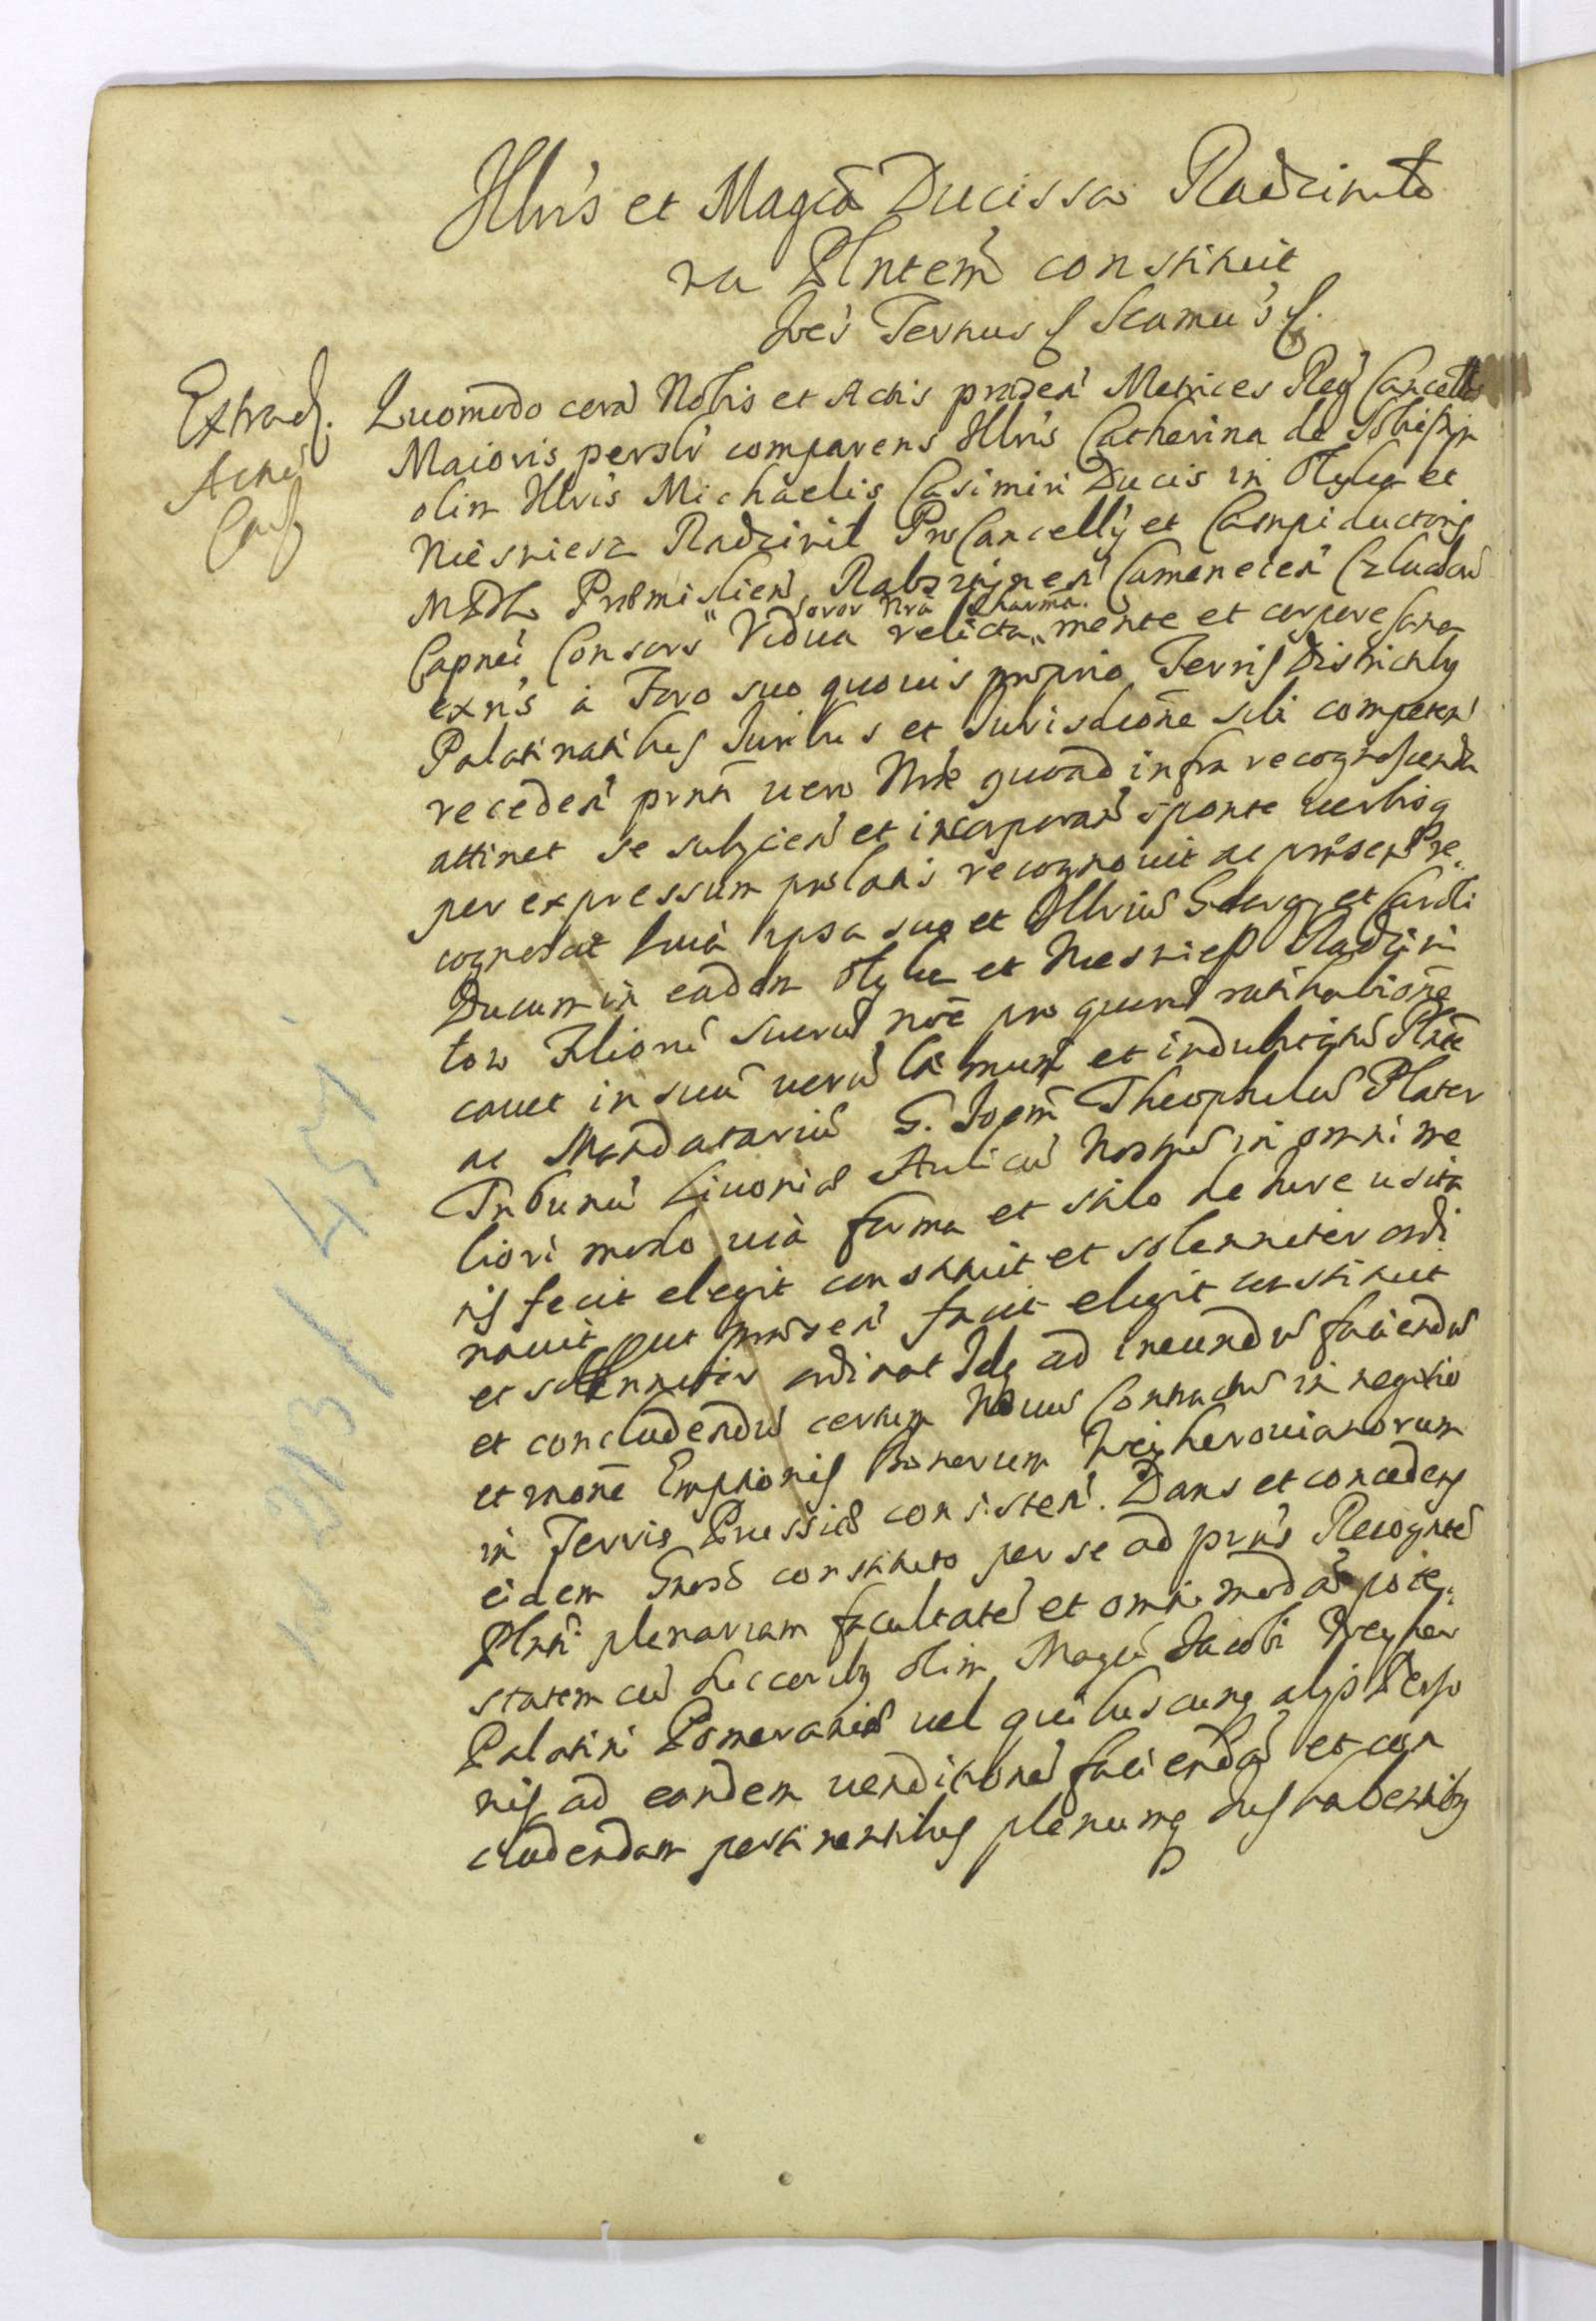 Illris et Magca Ducissa Radziwilo
va Plntem constituit
Joes Tertius S Scamus S.
Extrad.
Actu
Quomodo cora Nobis et Actis praesen Metrices Reg Cancellae
Maioris persolr comparens Illris Catherina de Sobieszyn
olim Illris Michaelis Casimiri Ducis in Olyka et
Niesviesz Radziwil ProCancellij et Campiductoris
MDL Praemislien, Rabsztynen Camenecen Czluchow
Soror Nra Charma.
Capnei Consors " Vidua relicta " mente et corpore sana
exns à Foro suo quovis proprio Terris Districtibq
Palatinatibus Juribus et Jurisdicone sibi competen
receden prnti vero Nrae quoad infra recognoscenda
attinet se subijcien et incorporan sponte verbisq
per expressum prolatis recognovit ac praesen re,
cognoscit Quia ipsa suo et Illriu Georgij et Caroli
Ducum in eadem Olyka et Niesviesz Radziwi
low Filioru suoru noe pro quorum ratihabitione
cavet in suu veru la mum et indubitatu Plnte
ac Mandatariu G. Joem Theophilu Plater
Tribunu Livoniae Aulicu Nostru in omni me
liori modo via forma et stilo de Jure usita
tis fecit elegit constituit et solenniter ordi
navit put praesen facit elegit constituit
et solenniter ordinat Idq ad ineundu faciendu
et concludendu certum Novu Contractu in negotio
et raone Emptionis Bonorum Weyherovianorum
in Terris Prussiae consisten. Dans et concedens
eidem Gnoso constituto per se ad prns Recognte
Plnti plenariam facultate et omnimoda pote,
statem cu Succoribq olim Magci Jacobi Weyher
Palatini Pomeraniae vel quibuscunq alijs Perso
nis ad eandem venditione facienda et con
cludendam pertinentibus plenumq Jus habentibq